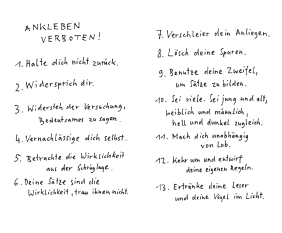 ANKLEBEN
VERBOTEN!
1. Halte dich nicht zurück.
2. Widersprich dir.
3. Widersteh der Versuchung,
Bedeutsames zu sagen.
4. Vernachlässige dich selbst.
5. Betrachte die Wirklichkeit
aus der Schräglage.
6. Deine Sätze sind die
Wirklichkeit, trau ihnen nicht.
7. Verschleier dein Anliegen.
8. Lösch deine Spuren.
9. Benutze deine Zweifel,
um Sätze zu bilden.
10. Sei viele. Sei jung und alt,
weiblich und männlich,
hell und dunkel zugleich.
11. Mach dich unabhängig
von Lob.
12. Kehr um und entwirf
deine eigenen Regeln.
13. Ertränke deine Leser
und deine Vögel im Licht.